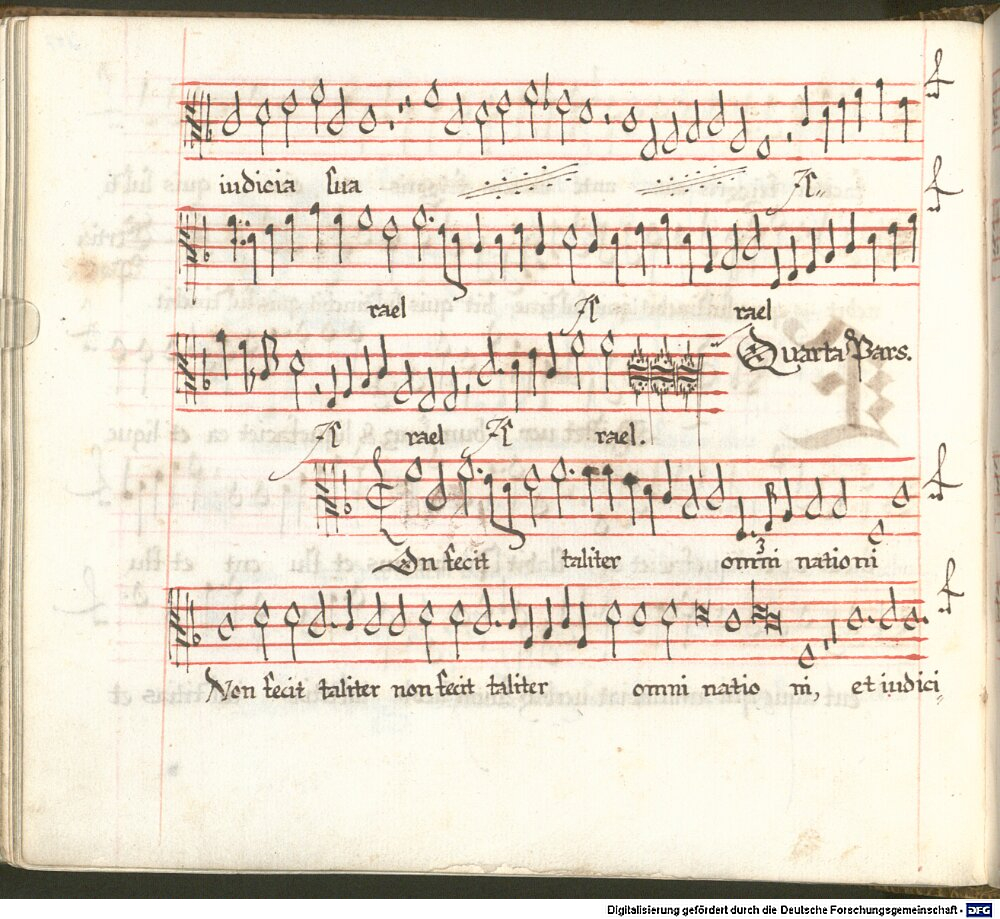 iudicia sua
rael rael
Quarta Pars.
rael rael.
On fecit taliter omni nationi
3
Non fecit taliter non fecit taliter omni natio ni, et iudici
Digitalisierung gefördert durch die Deutsche Forschungsgemeinschaft - DFG